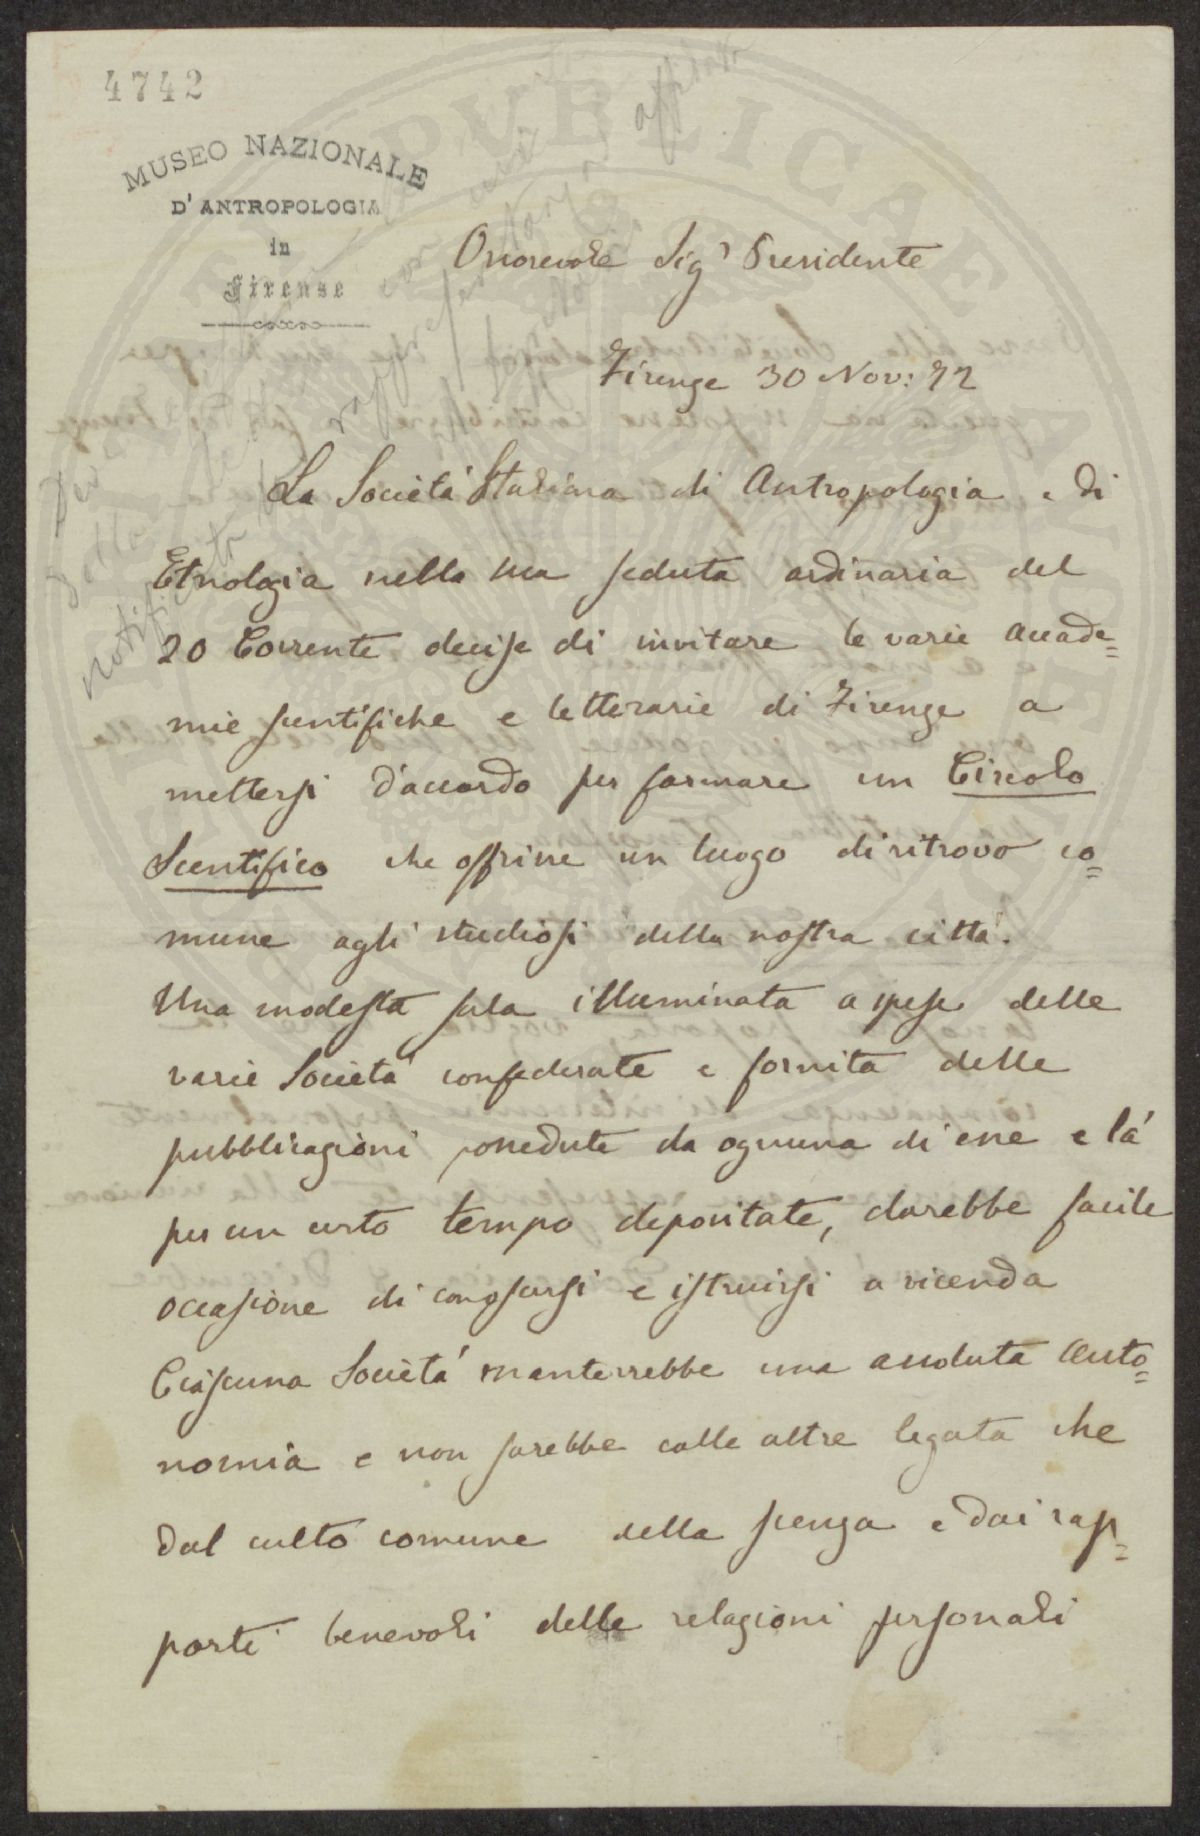 4742
MUSEO NAZIONALE
D'ANTROPOLOGIA
in
Firenze
Onorevole Sigr Presidente
Firenze 30 Nov: 72
La Società Italiana di Antropologia e di
Etnologia nella sua seduta ordinaria del
20 Corrente decise di invitare le varie accade=
mie scentifiche e letterarie di Firenze a
mettersi d'accordo per formare un Circolo
Scentifico che offrisse un luogo di ritrovo co=
mune agli studiosi della nostra città.
Una modesta sala illuminata a spese delle
varie Società confederate e fornita delle
pubblicazioni possedute da ognuna di esse e là
per un certo tempo depositate, darebbe facile
occasione di conoscersi e istruirsi a vicenda
Ciascuna Società manterrebbe una assoluta auto=
nomia e non sarebbe colle altre legata che
dal culto comune della scenza e dai rap=
porti benevoli delle relazioni personali